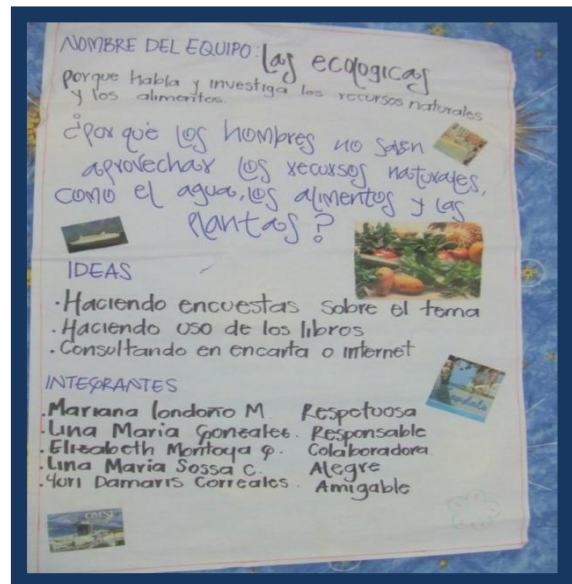 NOMBRE DEL EQUIPO: Las ecologicas
porque habla y investiga los recursos naturales
y los alimentos.
¿Por qué los hombres no saben
aprovechar los recursos naturales,
como el agua, los alimentos y las
plantas?
IDEAS
• Haciendo encuestas sobre el tema
• Haciendo uso de los libros
• Consultando en encarta o internet
INTEGRANTES
• Mariana londoño M. Respetuosa
• Lina Maria Gonzales. Responsable
• Elizabeth Montoya G. Colaboradora.
• Lina Maria Sossa c. Alegre
• Yuri Damaris Correales. Amigable